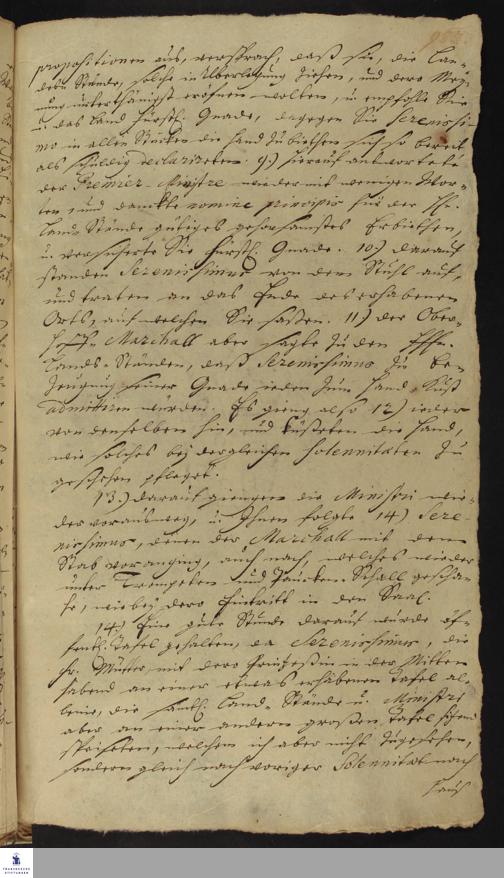 propositionen aus, versprach, daß sie, die Lan-
des Stände, solche in Überlegung ziehen, und dero Mey-
nung unterthänigst eröfnen wolten, u. empfohle Sie
u. das Land fürstl. Gnade, dagegen Sie Serenissi-
mo in allen Stücken die Hand zu biethen sich so bereit
als schuldig declarireten. 9.) hierauf antwortete
der Premier-Ministre wieder mit wenigen Wor-
ten, und danckte nomine principis für der
Land-Stände gütiges gehorsamstes Erbiethen,
u. versicherte Sie fürstl. Gnade. 10.) darauf
standen Serenissimus von dem Stuhl auf,
und traten an das Ende des erhabenen
Orts, auf welchen Sie saßen. 11.) der Ober-
Marchall aber sagte zu den
Lands-Ständen, daß Serenissimus zu Be-
zeugung seiner Gnade jeden zum Hand-Kuß
admittiren würden. Es gieng also 12.) jeder
von denselben hin, und küsseten die Hand,
wie solches bey dergleichen Solennitäten zu
geschehen pfleget.
13.) darauf giengen die Ministri wie-
der vorausweg, u. Ihnen folgte 14.) Sere-
nissimus, denen der Marchall mit dem
Stab vorangieng, auch nach, welches wieder
unter Trompeten und Paucken-Schall gescha-
he, wie bey dero Eintritt in den Saal.
14.) Eine gute Stunde darauf wurde öf-
fentl. Tafel gehalten, da Serenissimus, die
Fr. Mutter mit dero Printzeßin in der Mitten
habend an einer etwas erhabenen Tafel al-
leine, die sämtl. Land-Stände u. Ministri
aber an einer andern großen Tafel sitzend
speiseten, welchem ich aber nicht zugesehen,
sondern gleich nach voriger Solennität nach
Hauß
FRANCKESCHE
STIFTUNGEN